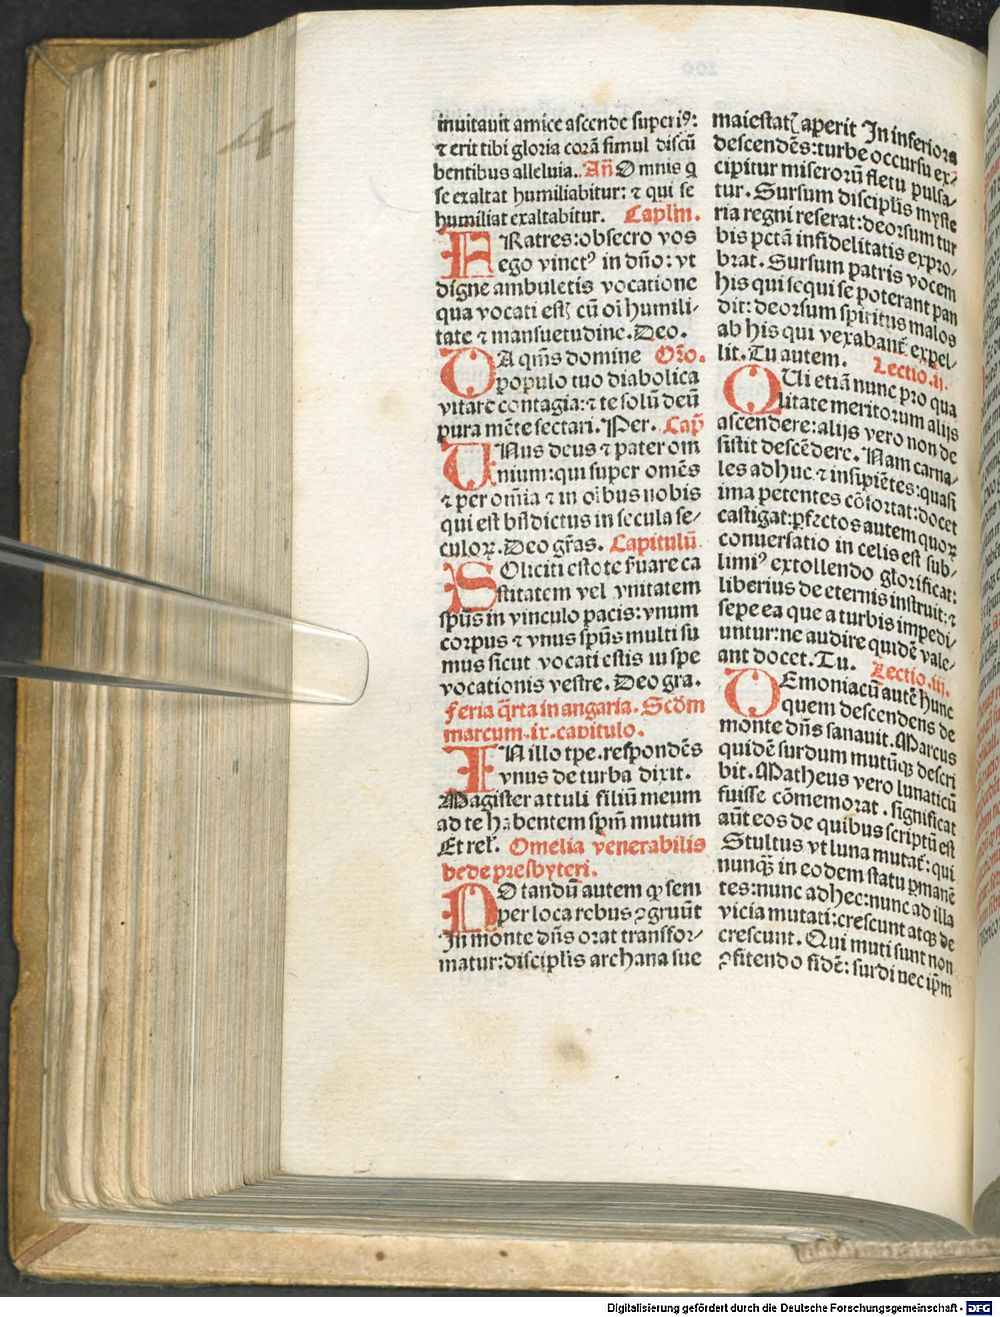 inuitauit amice ascende superiꝰ:
⁊ erit tibi gloria corā simul discū
bentibus alleluia. Añ Omnis q
se exaltat humiliabitur: ⁊ qui se
humiliat exaltabitur. Caplm.
FRatres: obsecro vos
ego vinctꝰ in dño: vt
digne ambuletis vocatione
qua vocati estꝭ cū oī humili-
tate ⁊ mansuetudine. Deo.
DA qm̄s domine Orō.
populo tuo diabolica
vitare contagia: ⁊ te solū deū
pura mēte sectari. Per. Cap̄
UNus deus ⁊ pater om̄
nium: qui super omēs
⁊ per om̄ia ⁊ in oībus nobis
qui est bn̄dictus in secula se/
culoꝝ. Deo gr̄as. Capitulū
SOliciti estote ẜuare ca
stitatem vel vnitatem
sp̄us in vinculo pacis: vnum
corpus ⁊ vnus sp̄us multi su
mus sicut vocati estis in spe
vocationis vestre. Deo gra.
Feria q̄rta in angaria. Scd̄m
marcum .ix. capitulo.
IN illo tp̄e. respondēs
vnus de turba dixit.
Magister attuli filiū meum
ad te habentem sp̄m mutum
Et rel'. Omelia venerabilis
bede presbyteri.
NOtandū autem ꝙ sem
per loca rebus ꝯgruūt
In monte dn̄s orat transfor/
matur: disciplis archana sue
maiestatꝭ aperit In inferiora
descendēs: turbe occursu ex/
cipitur miseroru fletu pulsa/
tur. Sursum disciplis myste
ria regni reserat: deorsum tur
bis pctā infidelitatis expro/
brat. Sursum patris vocem
his qui sequi se poterant pan
dit: deorsum spiritus malos
ab his qui vexabant̄ expel-
lit. Tu autem. Lectio .ij.
QUi etiā nunc pro qua
litate meritorum alijs
ascendere: alijs vero non de
sistit descēdere. Nam carna/
les adhuc ⁊ insipiētes: quasi
ima petentes cōfortat: docet
castigat: ꝑfectos autem quoꝝ
conuersatio in celis est sub/
limiꝰ extollendo glorificat:
liberius de eternis instruit: ⁊
sepe ea que a turbis impedi/
untur: ne audire quidē vale/
ant docet. Tu. Lectio .iij.
DEmoniacū autē hunc
quem descendens de
monte dn̄s sanauit. Marcus
quidē surdum mutūqꝫ descri
bit. Matheus vero lunaticū
fuisse cōmemorat. significat
aūt eos de quibus scriptū est
Stultus vt luna mutat̄: qui
nunqꝫ in eodem statu ꝑmanē
tes: nunc ad hec: nunc ad illa
vicia mutati: crescunt atqꝫ de
crescunt. Qui muti sunt non
ꝯfitendo fidē: surdi nec ip̄m
Digitalisierung gefördert durch die Deutsche Forschungsgemeinschaft - DFG